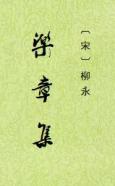 〔宋〕柳永
樂章集